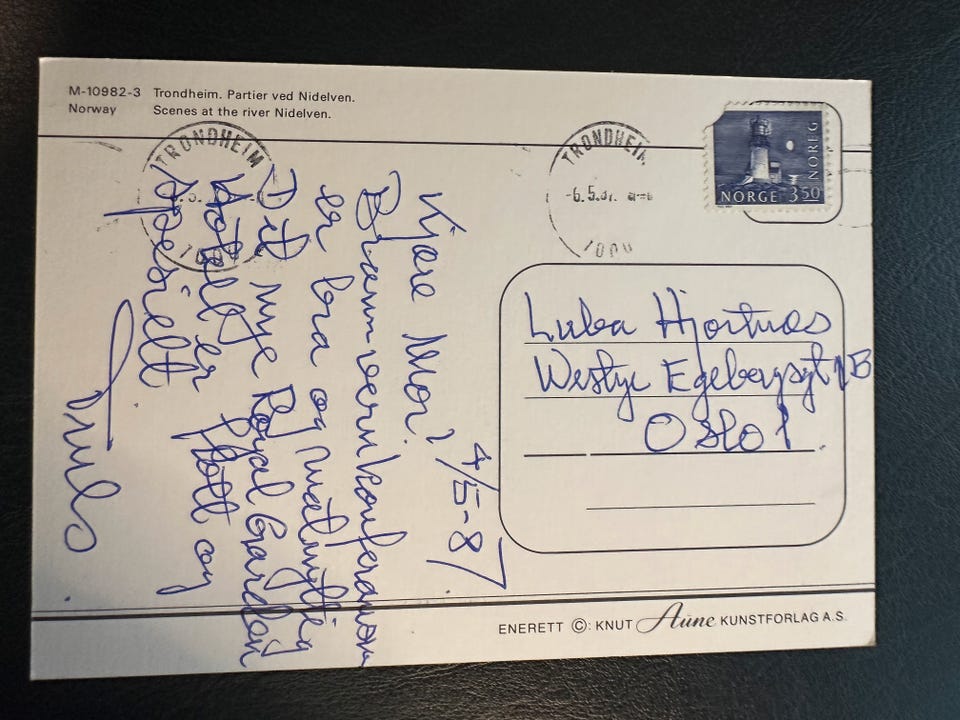 M-10982-3 Trondheim. Partier ved Nidelven.
Norway Scenes at the river Nidelven.
TRONDHEIM
TRONDHEIM
-6.5.87.
NOREG
NORGE 350
4/5-87
Kjære Mor!
Brannvernkonferansen
er bra og nattig
Det nye Royal Garden
Hotell er flott og
spesielt
Truls
Hjortnæs
Westye Egebergsgt 1B
Oslo 1.
ENERETT ©: KNUT Aune KUNSTFORLAG A.S.